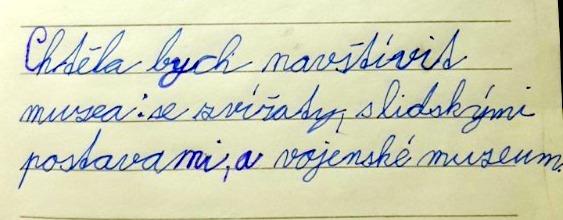 Chtěla bych navštívit
muzea: se zvířaty, s lidskými
postavami, a vojenské muzeum.